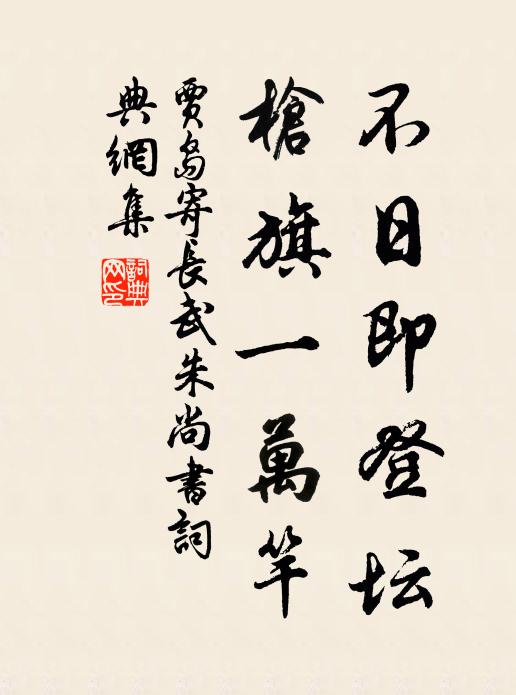 不日即登坛
槍旗一萬竿
賈島寄長武朱尚書詞
典網集
詞典
网印